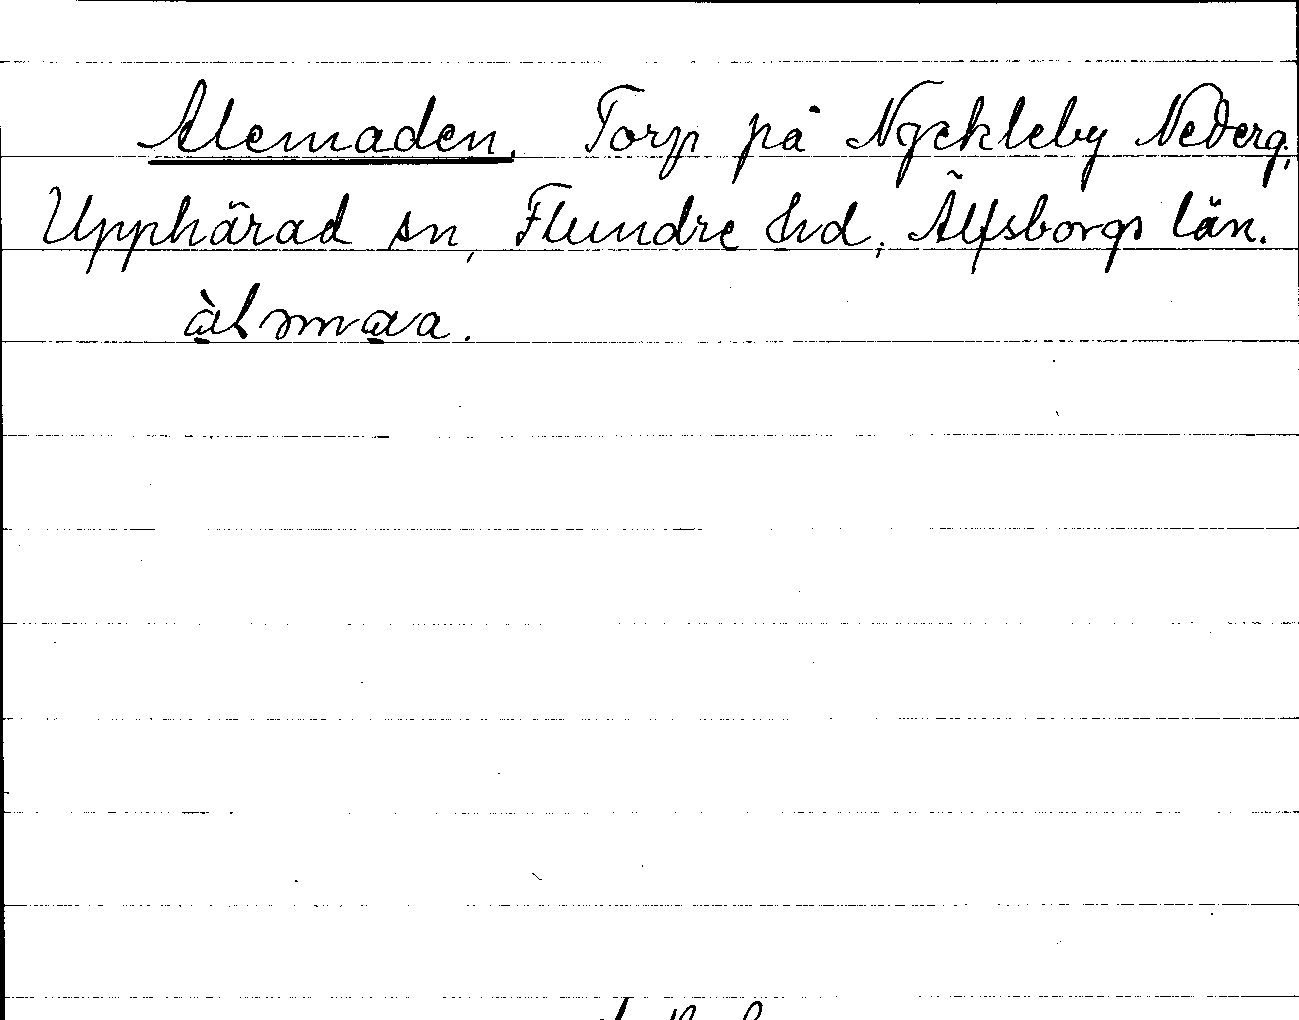 Alemaden. Torp på Nyckleby Nederg.,
Upphärad sn, Flundre hd, Älfsborgs län.